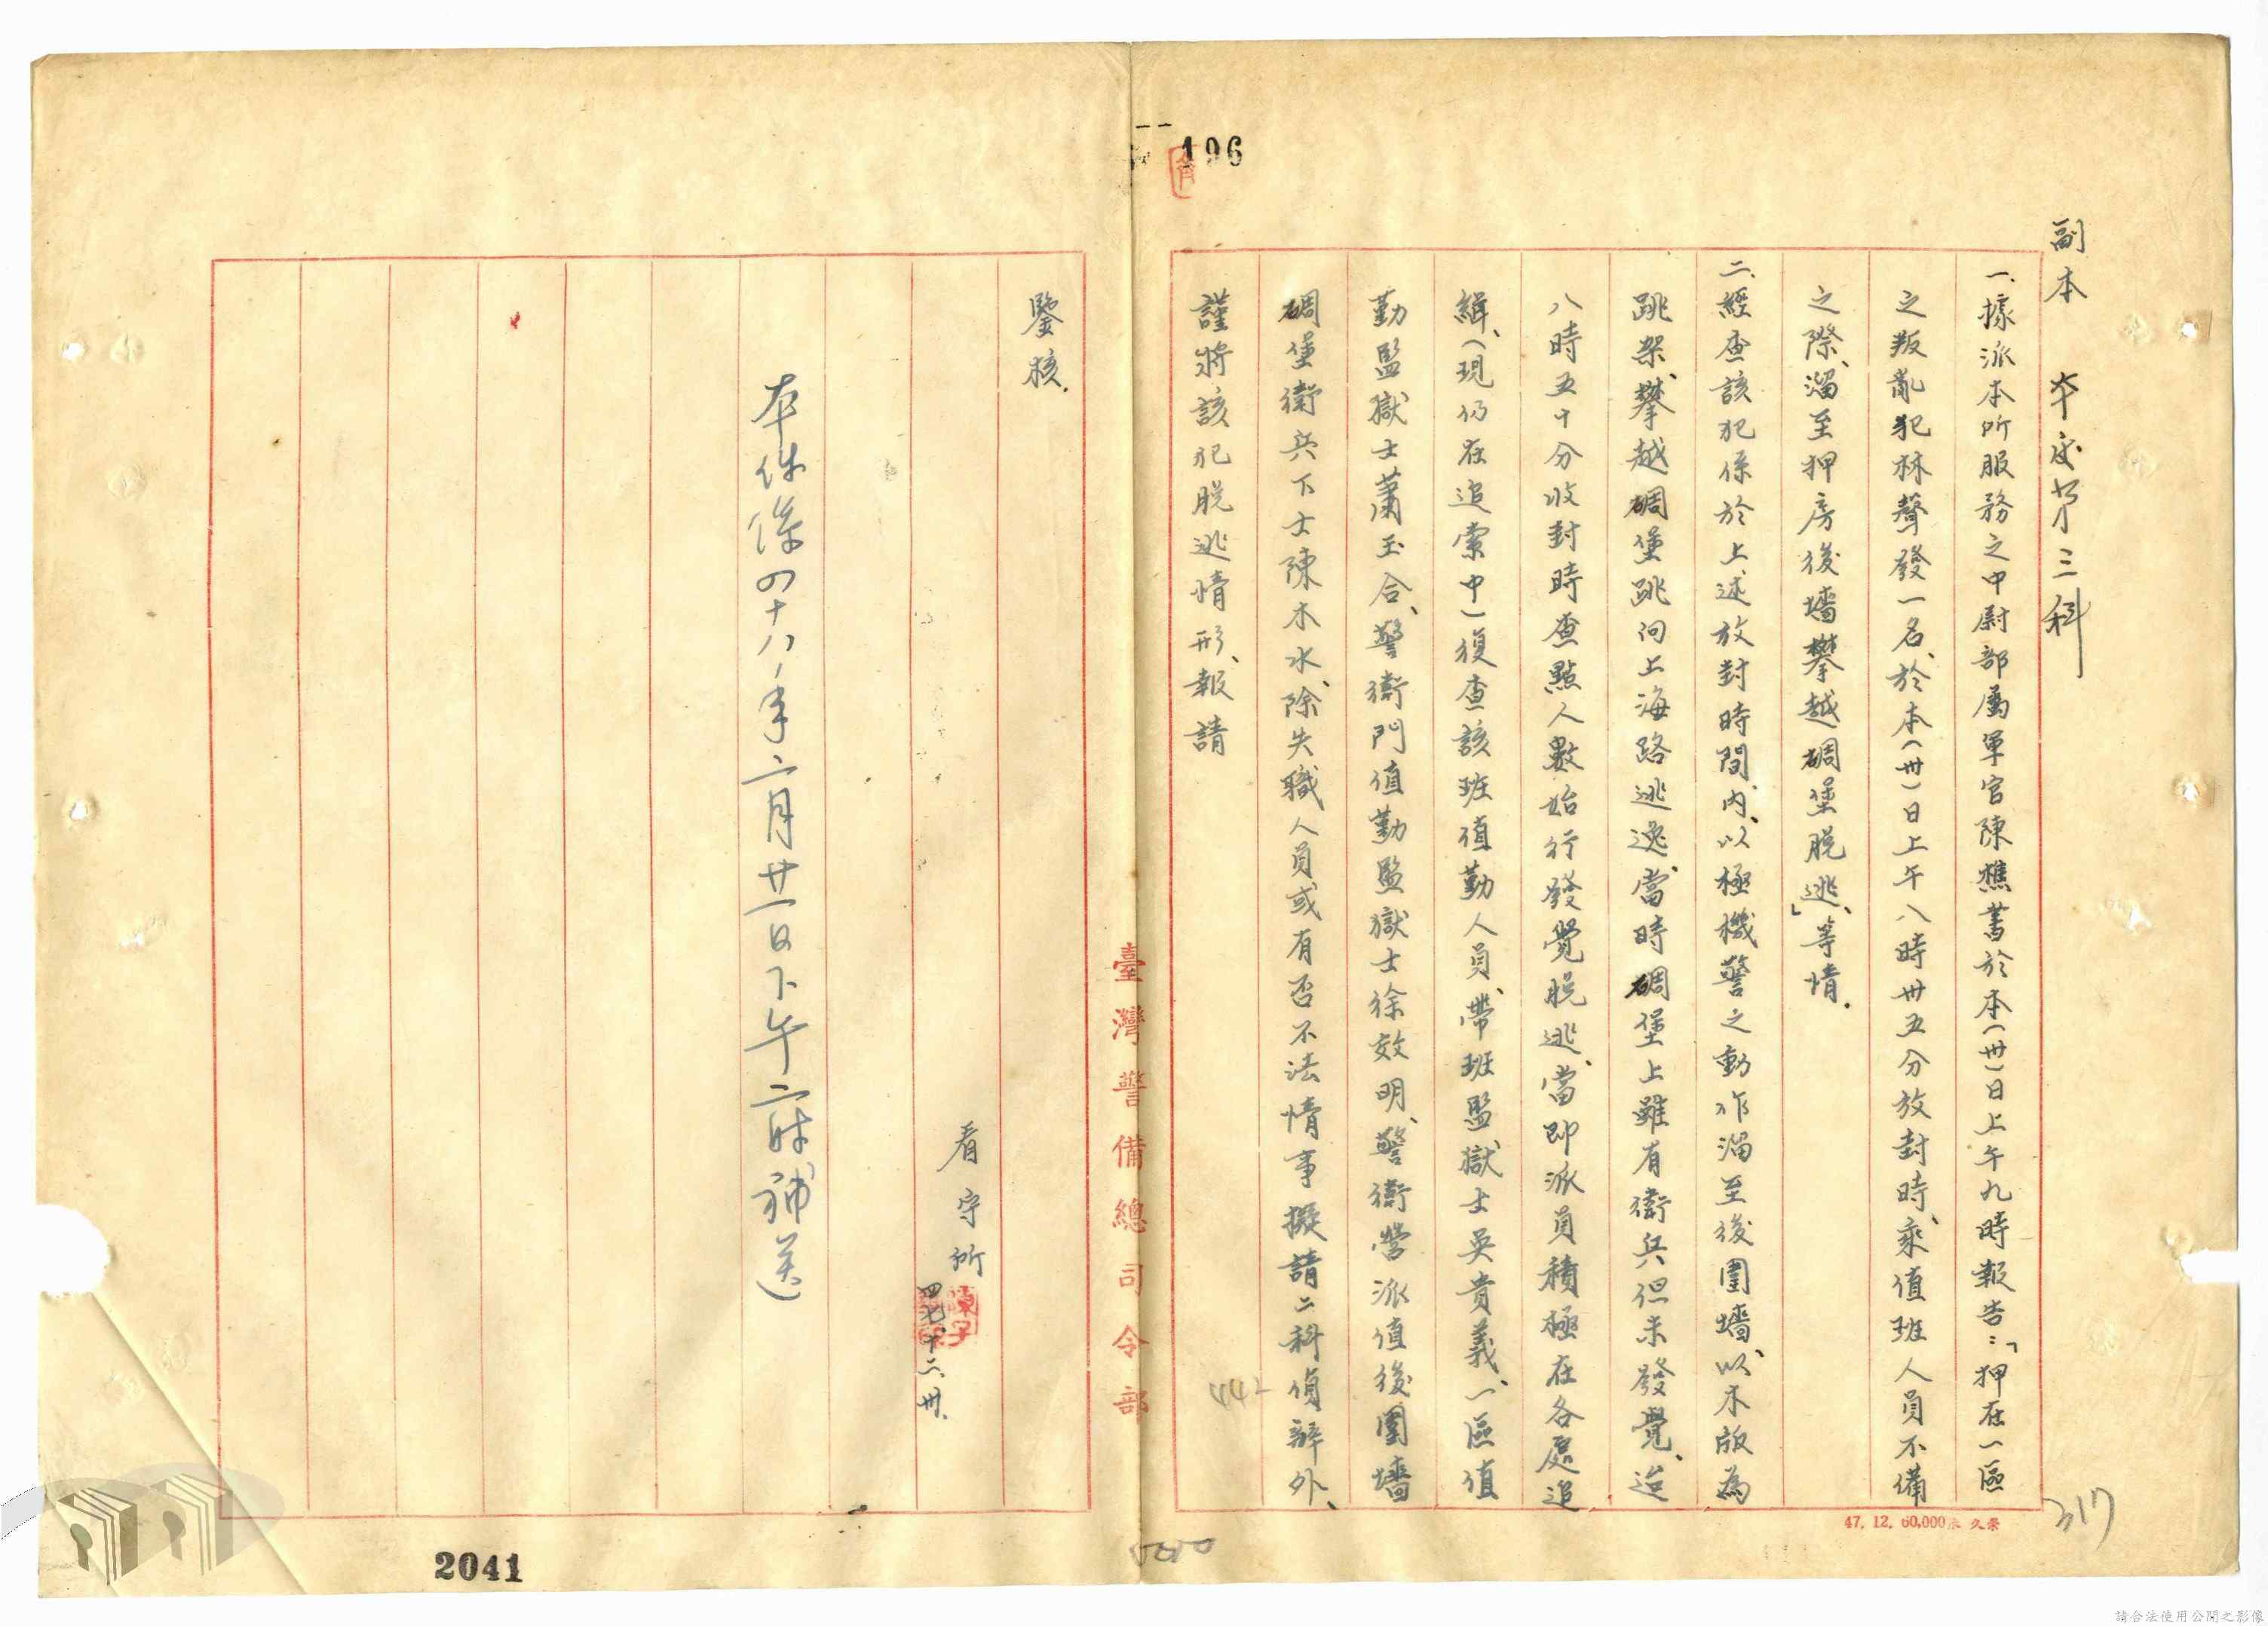 196
副本 本處第三科
一、據派本所服務之中尉部屬軍官陳樵書於本(卅)日上午九時報告:「押在一區
之叛亂犯林聲發一名、於本(卅)日上午八時卅五分放封時、乘值班人員不備
之際、溜至押房後墻攀越碉堡脫逃」、等情.
二、經查該犯係於上述放封時間內、以極機警之動作溜至後圍墻、以木版為
跳架、攀越碉堡跳向上海路逃逸、當時碉堡上雖有衛兵但未發覺、迨
八時五十分收封時查點人數始行發覺脫逃、當即派員積極在各處追
緝、(現仍在追索中)復查該班值勤人員、帶班監獄士吳貴義、一區值
勤監獄士蕭玉合、警衛門值勤監獄士徐效明、警衛營派值後圍墻
碉堡衛兵下士陳木水、除失職人員或有否不法情事擬請二科偵辦外、
謹將該犯脫逃情形、報請
鑒核.
看守所
四七、十二、卅、
本件係四十八年二月廿一日下午二時補送
臺灣警備總司令部
47. 12. 60,000
317
442
2041
請合法使用公開之影像